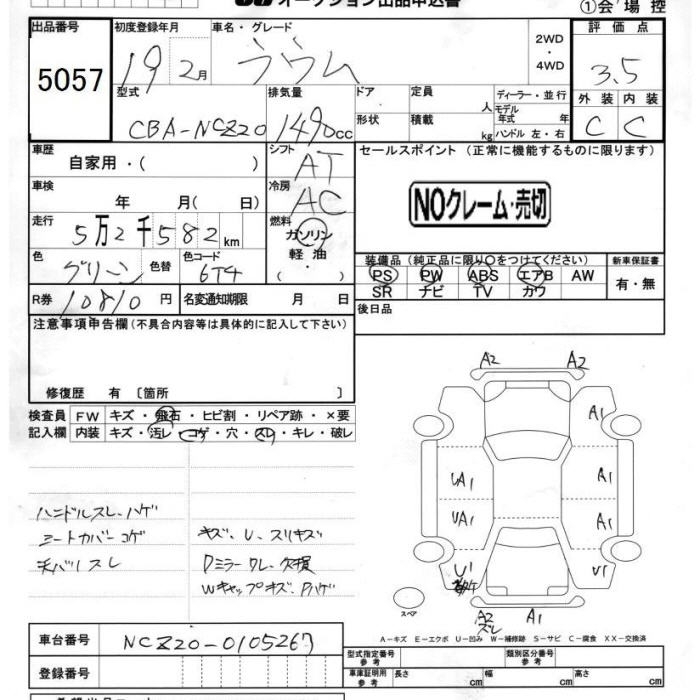 オークション出品申込書 ①会場控
出品番号 初度登録年月 車名・グレード 2WD ・ 4WD 評価点
5057 19 2月 ラウム 3.5
型式 排気量 ドア 定員 人 ディーラー・並行 外装 内装
CBA-NCZ20 1490cc 形状 積載 kg モデル年式 年 ハンドル 左・右 C C
車歴 シフト セールスポイント (正常に機能するものに限ります)
自家用・( ) AT
車検 冷房 NOクレーム・売切
年 月( 日) AC
走行 燃料
5万2千582km ガソリン
色 色替 色コード 軽油 装備品(純正品に限り○をつけてください) 新車保証書
グリーン 6T4 ・( ) PS PW ABS エアB AW 有・無
SR ナビ TV カワ
R券 10810円 名変通知期限 月 日 後日品
注意事項申告欄(不具合内容等は具体的に記入して下さい)
修復歴 有 〔箇所 〕
検査員 FW キズ・飛石・ヒビ割・リペア跡・×要
記入欄 内装 キズ・汚レ・コゲ・穴・スレ・キレ・破レ
A2 A2
A1
UA1 A1
UA1 A1
U1 U1
A2 スレ A1
スペア
ハンドルスレ、ハゲ
シートカバーコゲ キズ、U、スリキズ
毛バリスレ Dミラーワレ、欠損
WキャップキズPハゲ
A−キズ E−エクボ U−凹み W−補修跡 S−サビ C−腐食 XX−交換済
車台番号 NCZ20-0105267 型式指定番号 参考 類別区分番号 参考
登録番号 車庫証明用 参考 長さ cm 幅 cm 高さ cm